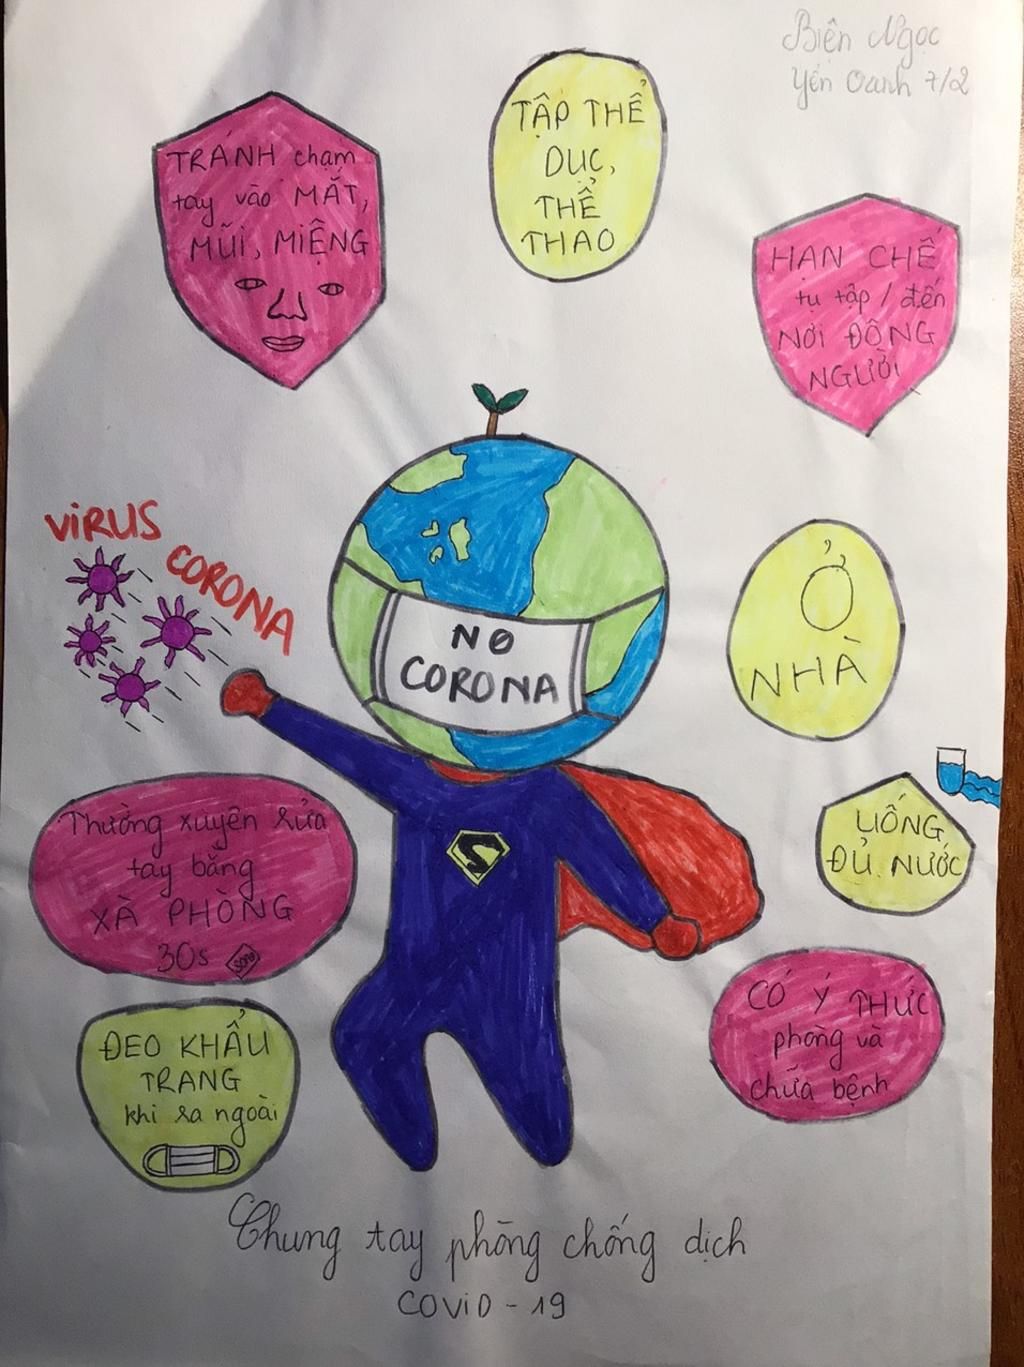 Biện Ngọc
Yến Oanh 7/2
TRÁNH chạm
tay vào MẮT,
MŨI, MIỆNG
TẬP THỂ
DỤC,
THỂ
THAO
HẠN CHẾ
tụ tập / đến
NƠI ĐÔNG
NGƯỜI
VIRUS
CORONA
NO
CORONA
Ở
NHÀ
S
UỐNG
ĐỦ NƯỚC
Thường xuyên rửa
tay bằng
XÀ PHÒNG
30s
CÓ Ý THỨC
phòng và
chữa bệnh
ĐEO KHẨU
TRANG
khi ra ngoài
Chung tay phòng chống dịch
COVID - 19